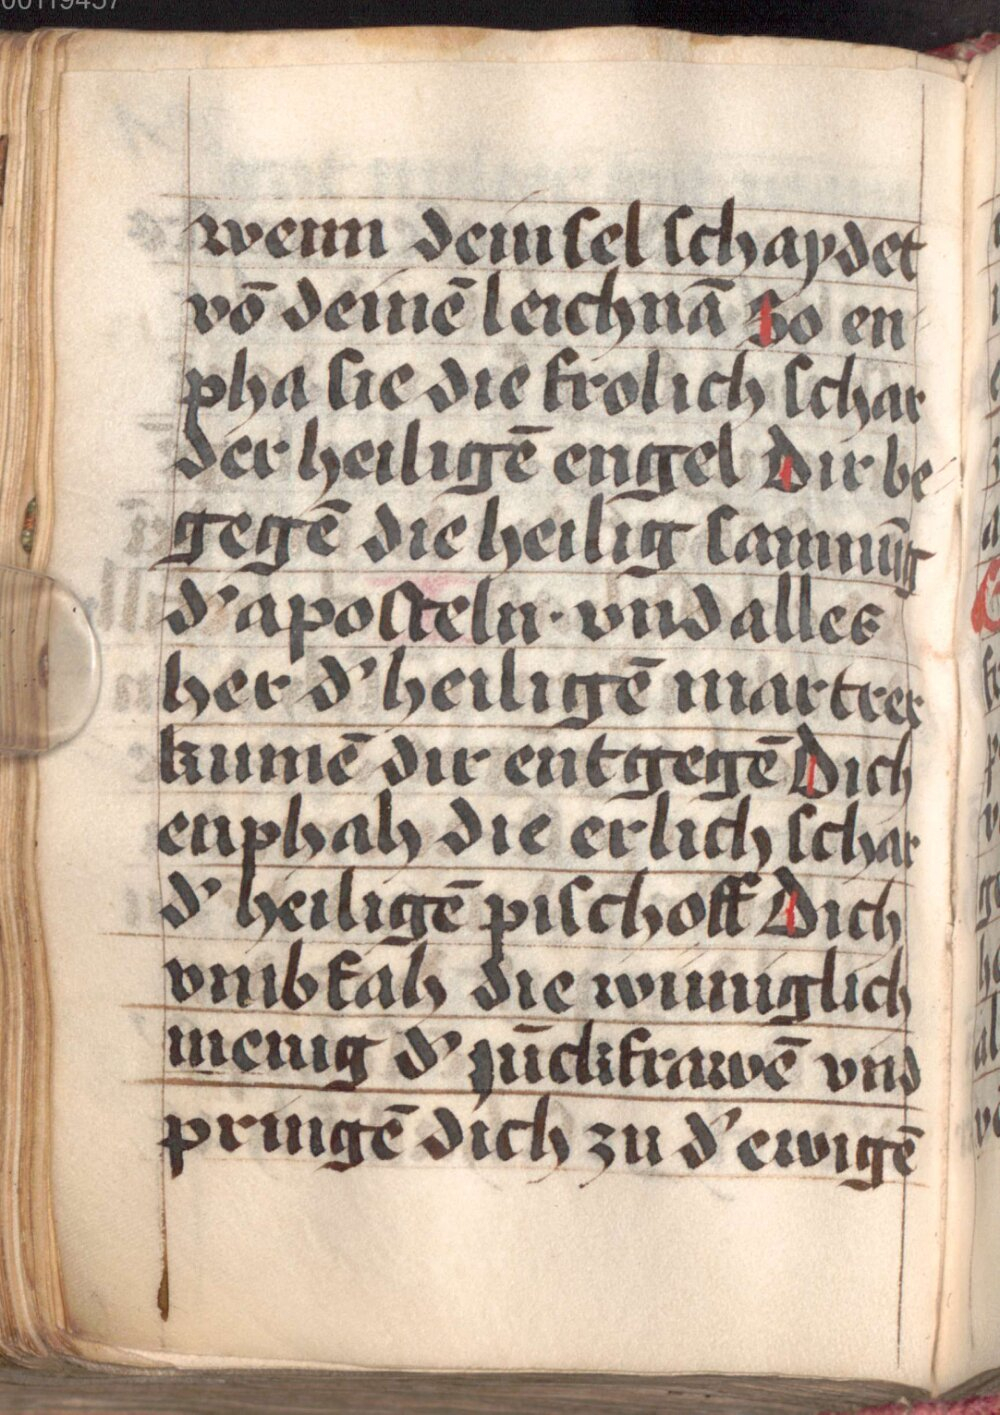 wenn dein sel schaydet
võ deinē leichnā So en
pha sie die frolich schar
der heiligē engel Dir be
gegē die heilig samnūg
d' aposteln · vnd alles
her d' heiligē martrer
kumē dir entgegē Dich
enphah die erlich schar
d' heiligē pischoff Dich
vmbfah die wunniglich
menig d' jūckfrawē vnd
pringē dich zu d' ewigē